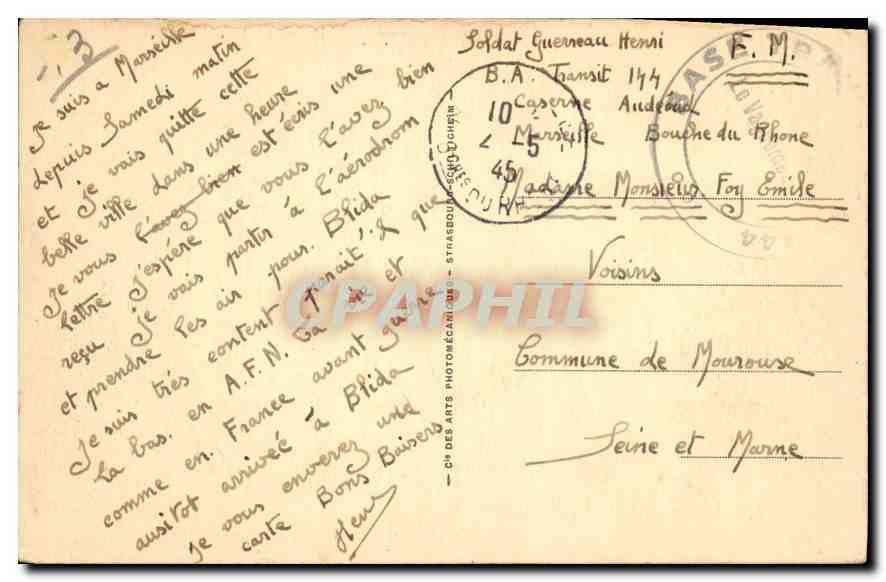 Je suis a Marseille
depuis Samedi matin
et je vais quitte cette
belle ville dans une heure
Je vous l'avez bien est ecris une
lettre J'espére que vous l'avez bien
reçu je vais partir à l'aérodrom
et prendre les air pour Blida
Je suis trés content parait'il que
la bas. en A.F.N. la vie et
comme en France avant guerre
ausitot arrivée à Blida
Je vous enverez une
carte Bons Baisers
Henri
Soldat Guerreau Henri
B.A. Transit 144
Caserne Audéoud
Marseille Bouche du Rhone
F.M.
Madame Monsieur Foy Emile
Voisins
Commune de Mourouse
Seine et Marne
10
2 -5
45
BASE
44
— Cie DES ARTS PHOTOMÉCANIQUES — STRASBOURG-SCHILTIGHEIM —
CPAPHIL